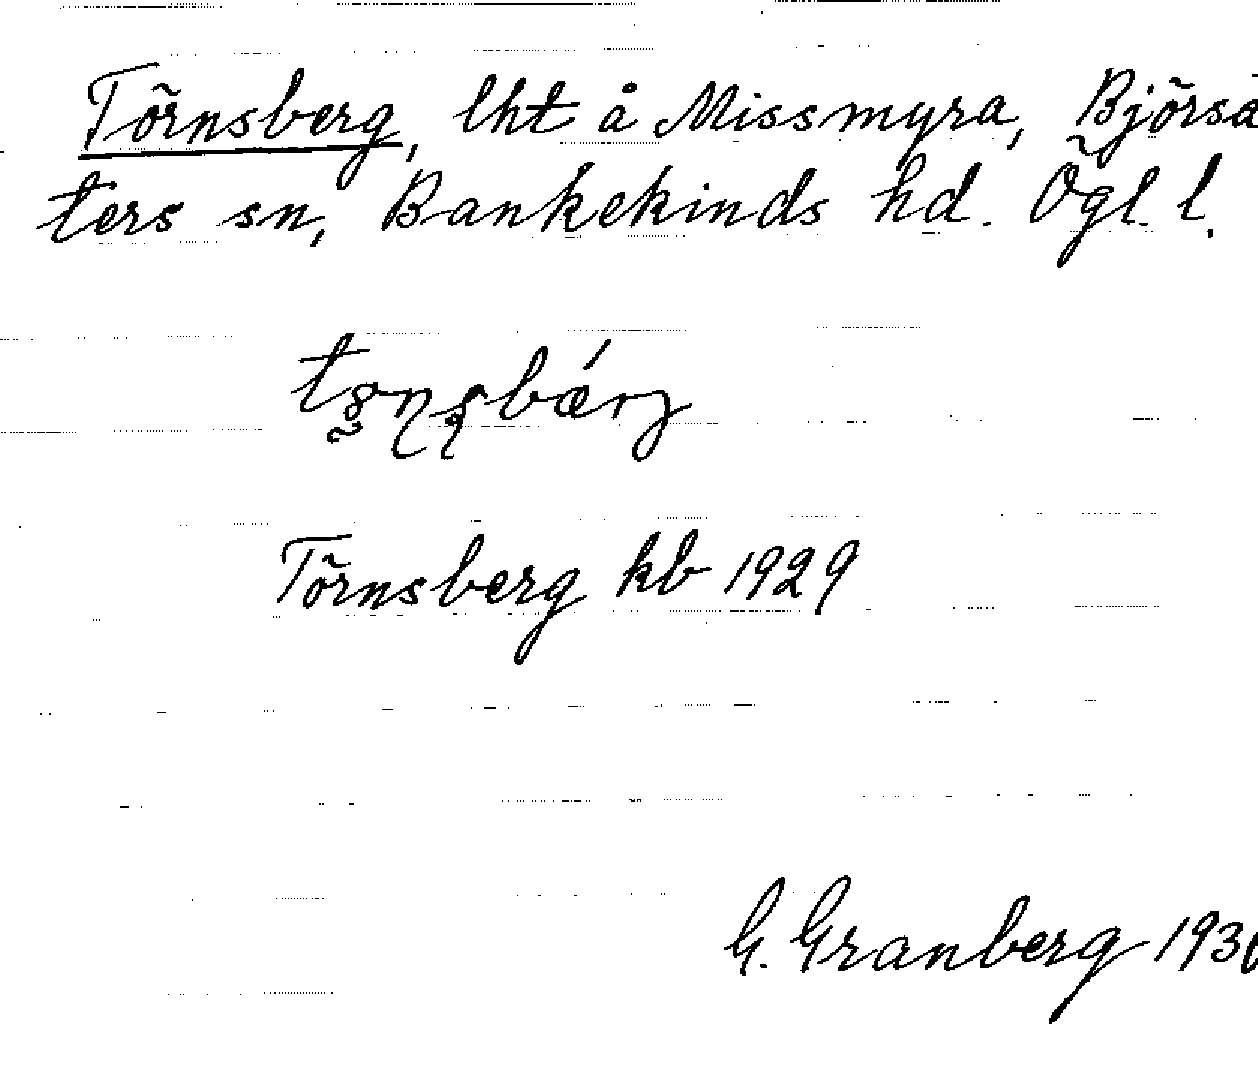 Törnsberg, lht å Missmyra, Björsä
ters sn, Bankekinds hd. Ögl. l.
Törnsberg kb 1929
G. Granberg 193